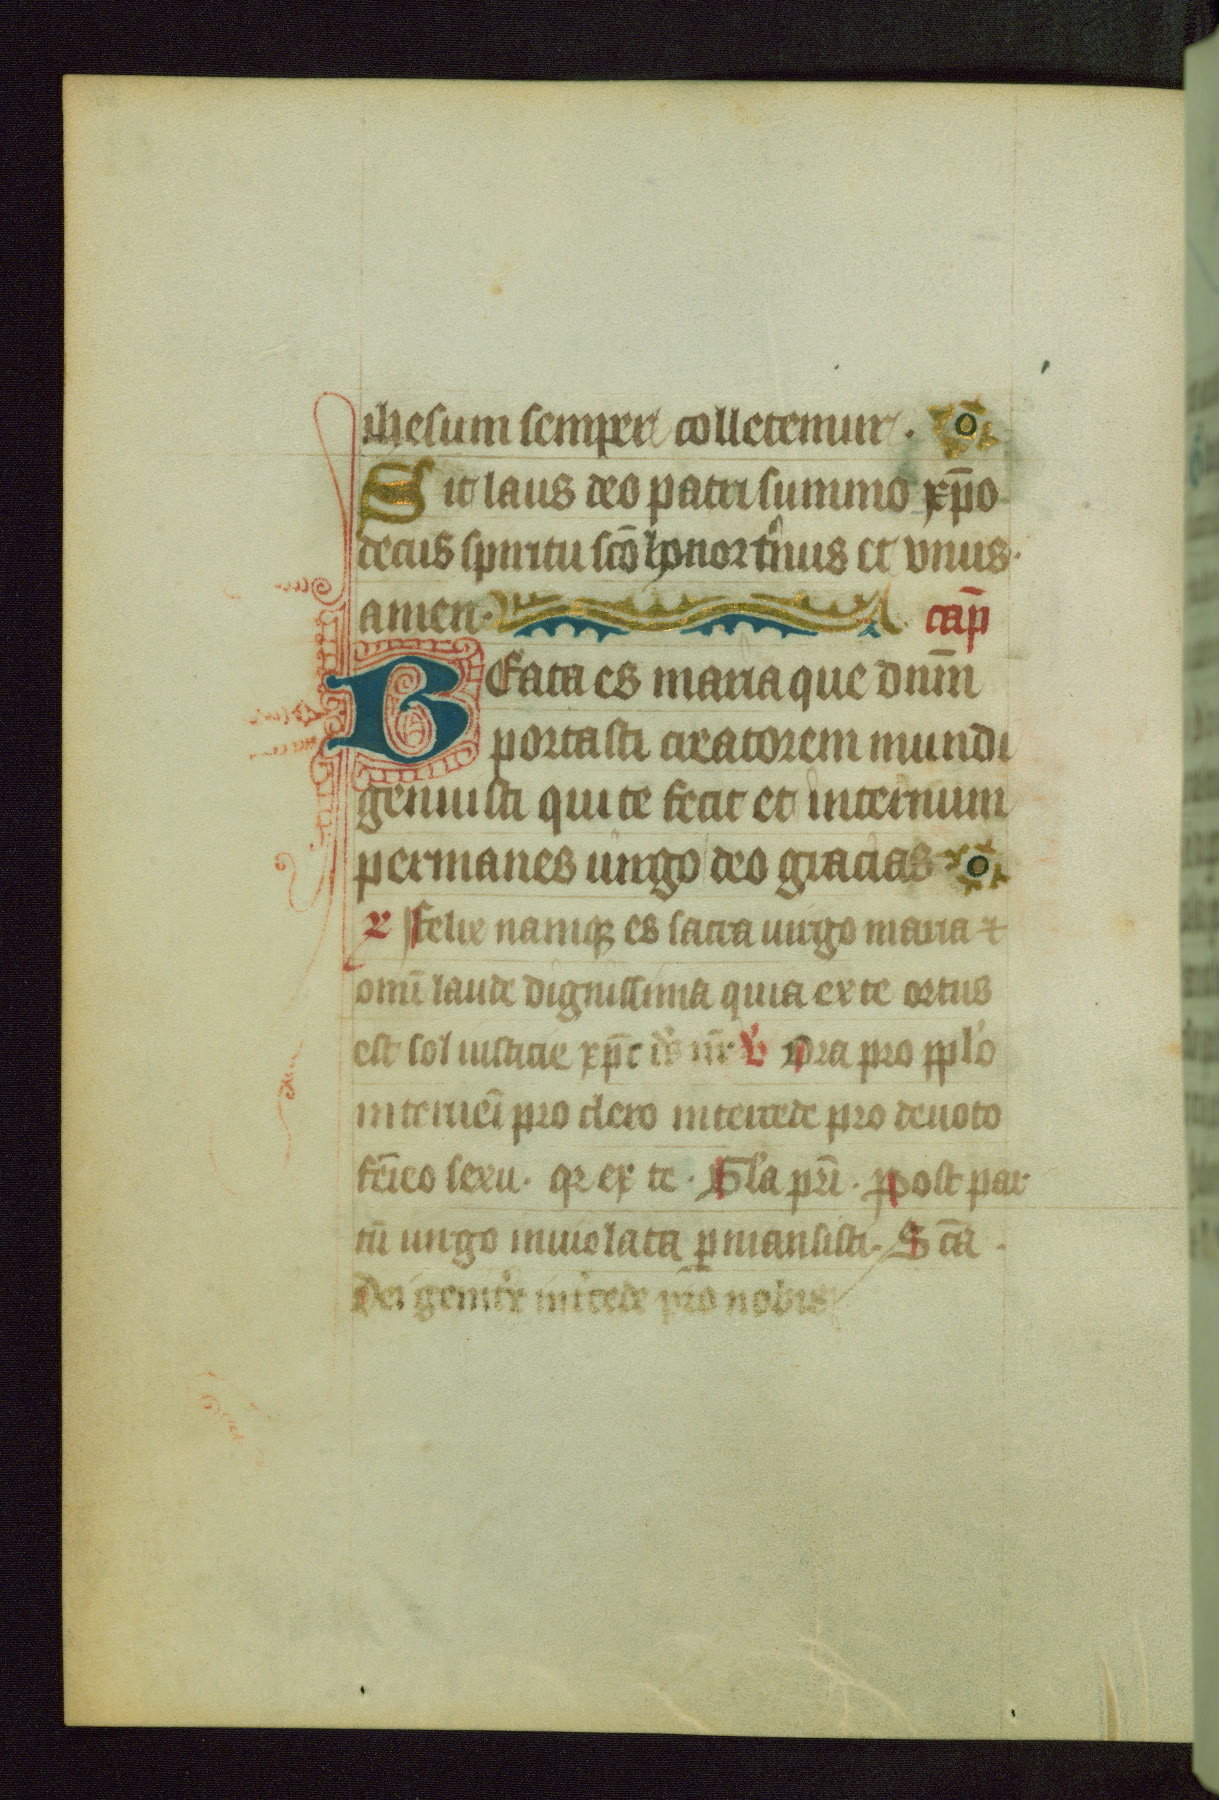 ihesum semper colletemur.
Sit laus deo patri summo xp̄o
decus spiritu scō honor tⁱnus et vnus.
amen. cap̄
BEata es maria que dnm̄
portasti creatorem mundi
genuisti qui te fecit et in eternum
permanes uirgo deo gracias
R Felix namqꝫ es sacra uirgo maria ⁊
omī laude dignissima quia ex te ortus
est sol iusticie xp̄c ds̄ nr̄ V Ora pro pplo
interueī pro clero intercede pro deuoto
fēieo sexu. qꝛ ex te. Gla pri. Post par
tū uirgo inuiolata ꝑmansisti. Scā.
Dei genitⁱx intcede pro nobis